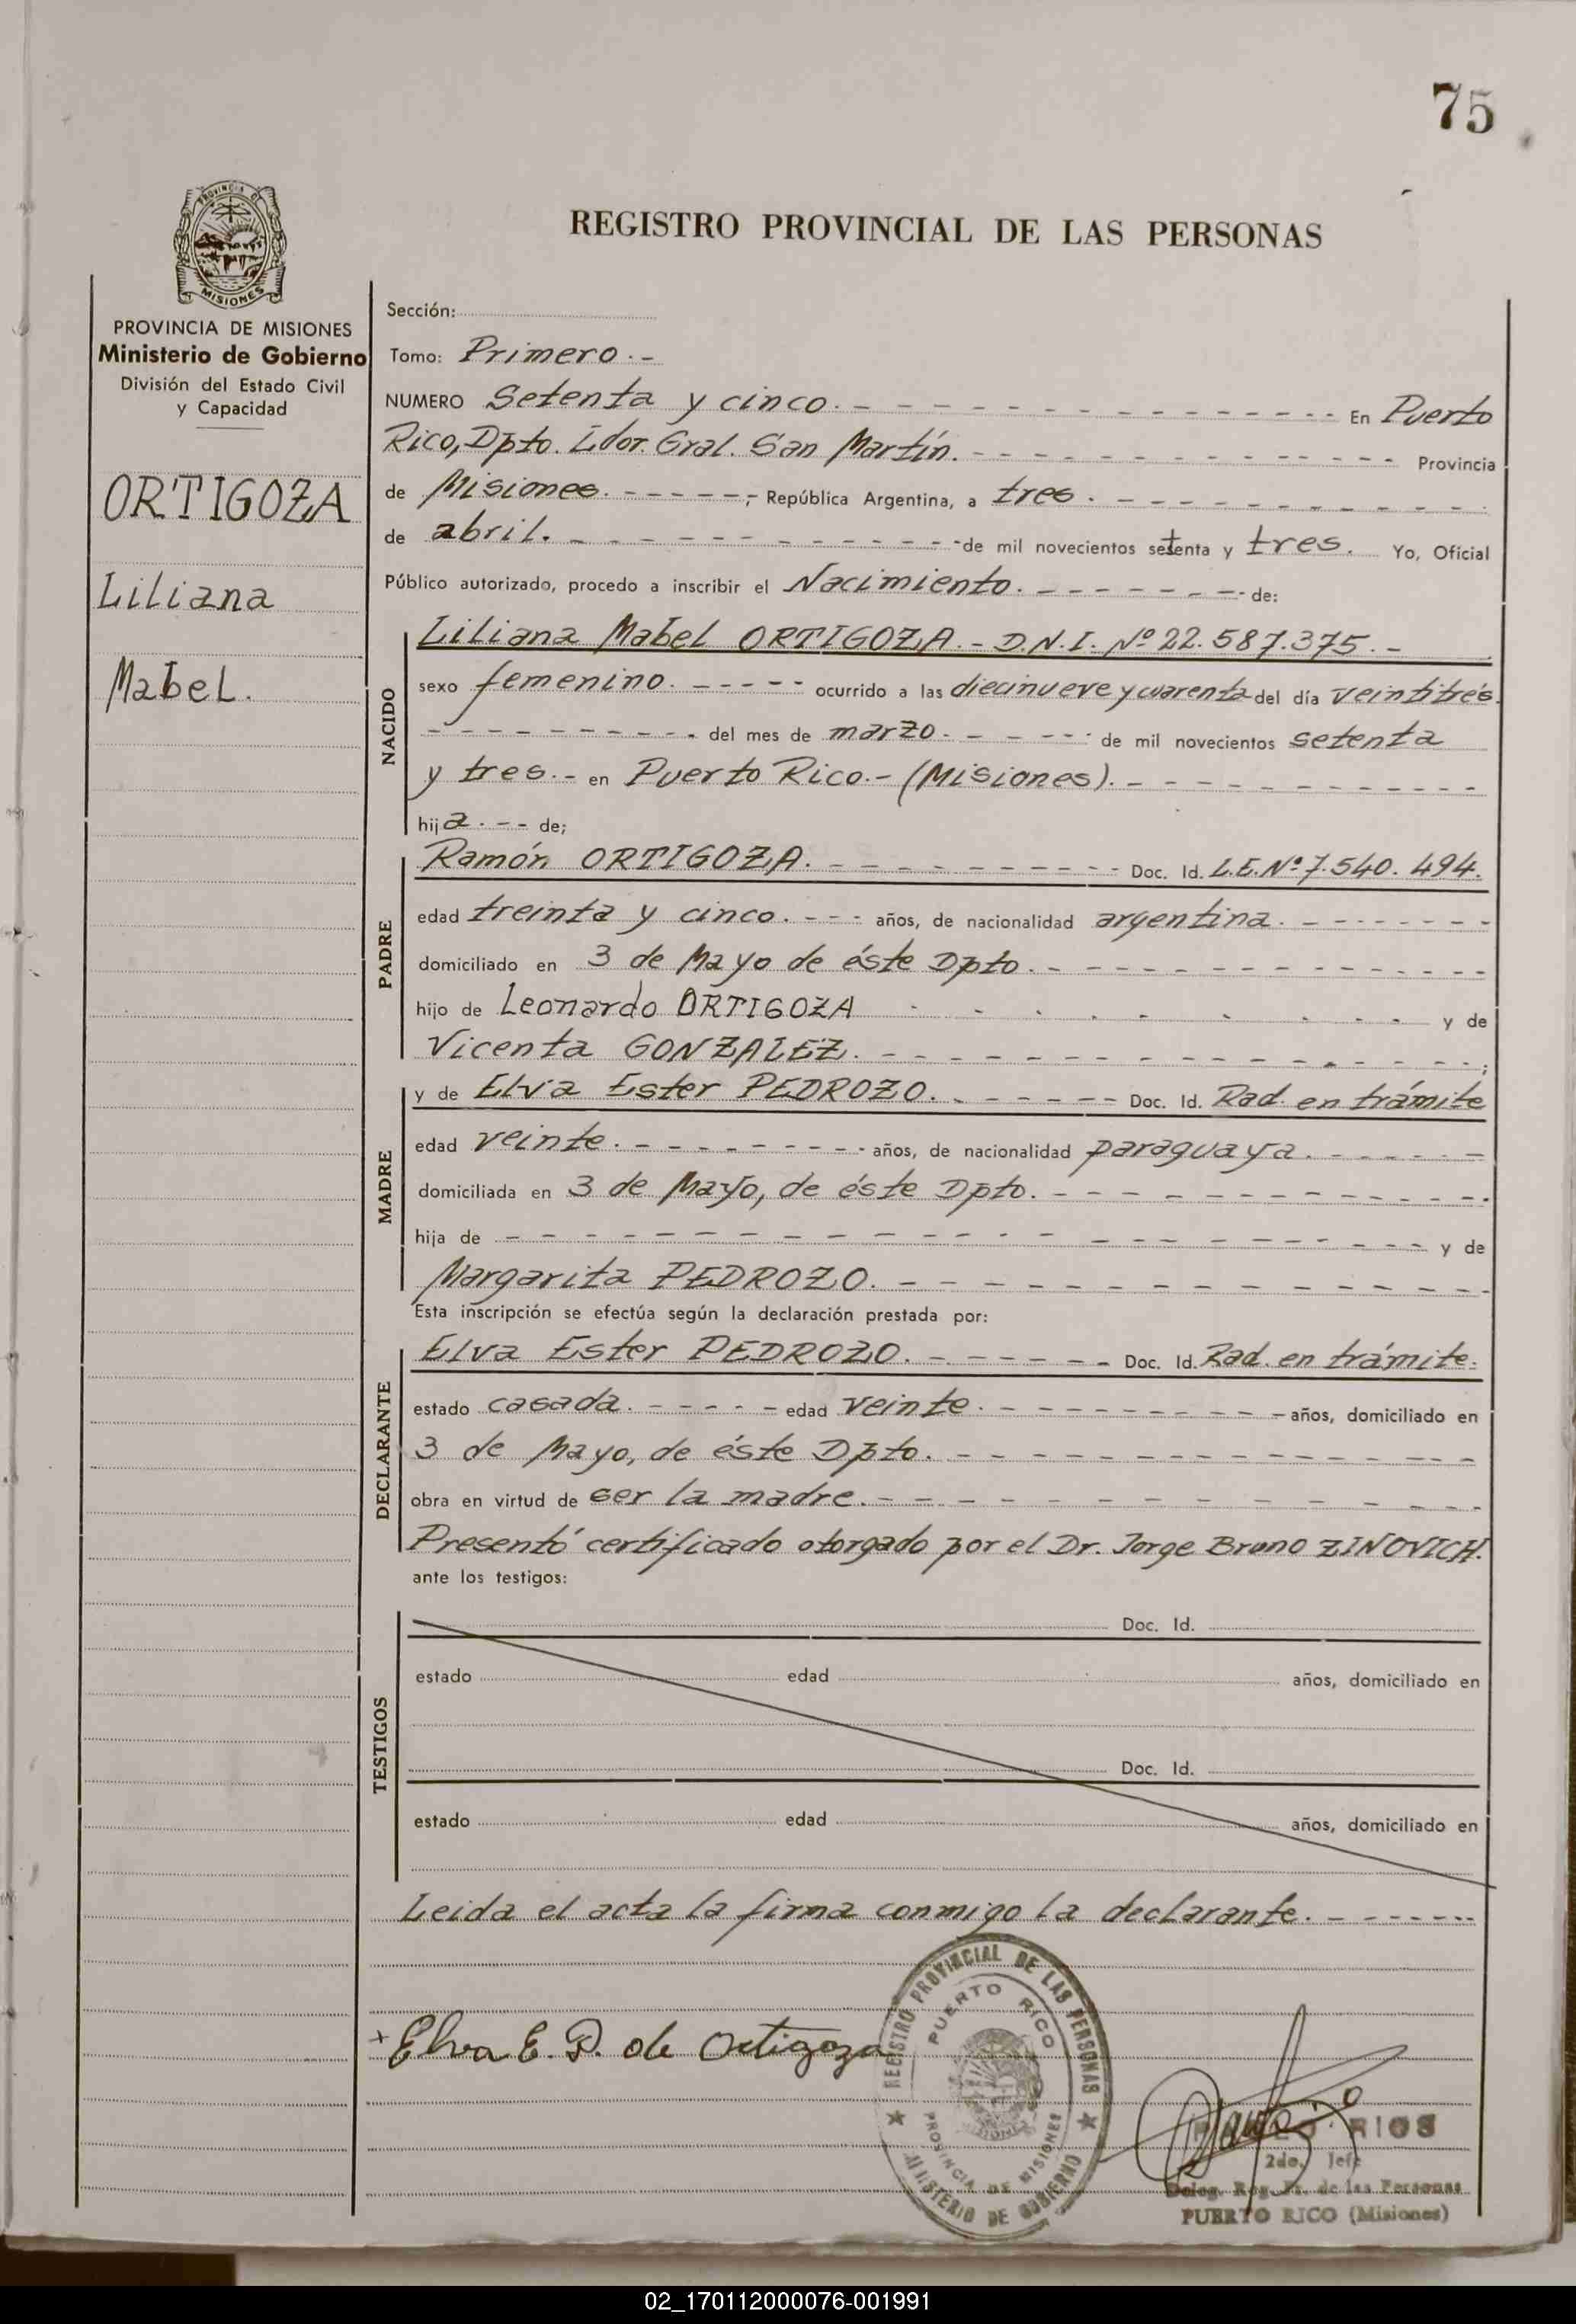 75
REGISTRO PROVINCIAL DE LAS PERSONAS
MISIONES
PROVINCIA DE MISIONES
Ministerio de Gobierno
División del Estado Civil
y Capacidad
ORTIGOZA
Liliana
Mabel.
Sección:
Tomo: Primero.-
NUMERO Setenta y cinco. - - - En Puerto
Rico, Dpto. Ldor. Gral. San Martín. - - - Provincia
de Misiones. - - - ; República Argentina, a tres. - - -
de abril. - - - de mil novecientos setenta y tres. Yo, Oficial
Público autorizado, procedo a inscribir el Nacimiento. - - - de:
NACIDO
Liliana Mabel ORTIGOZA.- D.N.I. Nº 22.587.375.-
sexo femenino. - - - ocurrido a las diecinueve y cuarenta del día veintitrés
- - - del mes de marzo. - - - de mil novecientos setenta
y tres.- en Puerto Rico.- (Misiones). - - -
hija. - - de;
PADRE
Ramón ORTIGOZA. - - - Doc. Id. L.E. Nº 7.540.494.
edad treinta y cinco. - - - años, de nacionalidad argentina. - - -
domiciliado en 3 de Mayo de éste Dpto. - - -
hijo de Leonardo ORTIGOZA - - - y de
Vicenta GONZALEZ. - - - ;
MADRE
y de Elva Ester PEDROZO. - - - Doc. Id. Rad. en trámite
edad veinte. - - - años, de nacionalidad paraguaya. - - -
domiciliada en 3 de Mayo, de éste Dpto. - - -
hija de - - - y de
Margarita PEDROZO. - - -
Esta inscripción se efectúa según la declaración prestada por:
DECLARANTE
Elva Ester PEDROZO. - - - Doc. Id. Rad. en trámite.
estado casada. - - - edad veinte. - - - años, domiciliado en
3 de Mayo, de éste Dpto. - - -
obra en virtud de ser la madre. - - -
Presentó certificado otorgado por el Dr. Jorge Bruno ZINOVICH.
ante los testigos:
TESTIGOS
Doc. Id.
estado edad años, domiciliado en
Doc. Id.
estado edad años, domiciliado en
Leida el acta la firma conmigo la declarante. - - -
+ Elva E. P. de Ortigoza
REGISTRO PROVINCIAL DE LAS PERSONAS
PUERTO RICO
PROVINCIA DE MISIONES
MINISTERIO DE GOBIERNO
RIOS
2do. Jefe
Deleg. Reg. P. de las Personas
PUERTO RICO (Misiones)
02_170112000076-001991